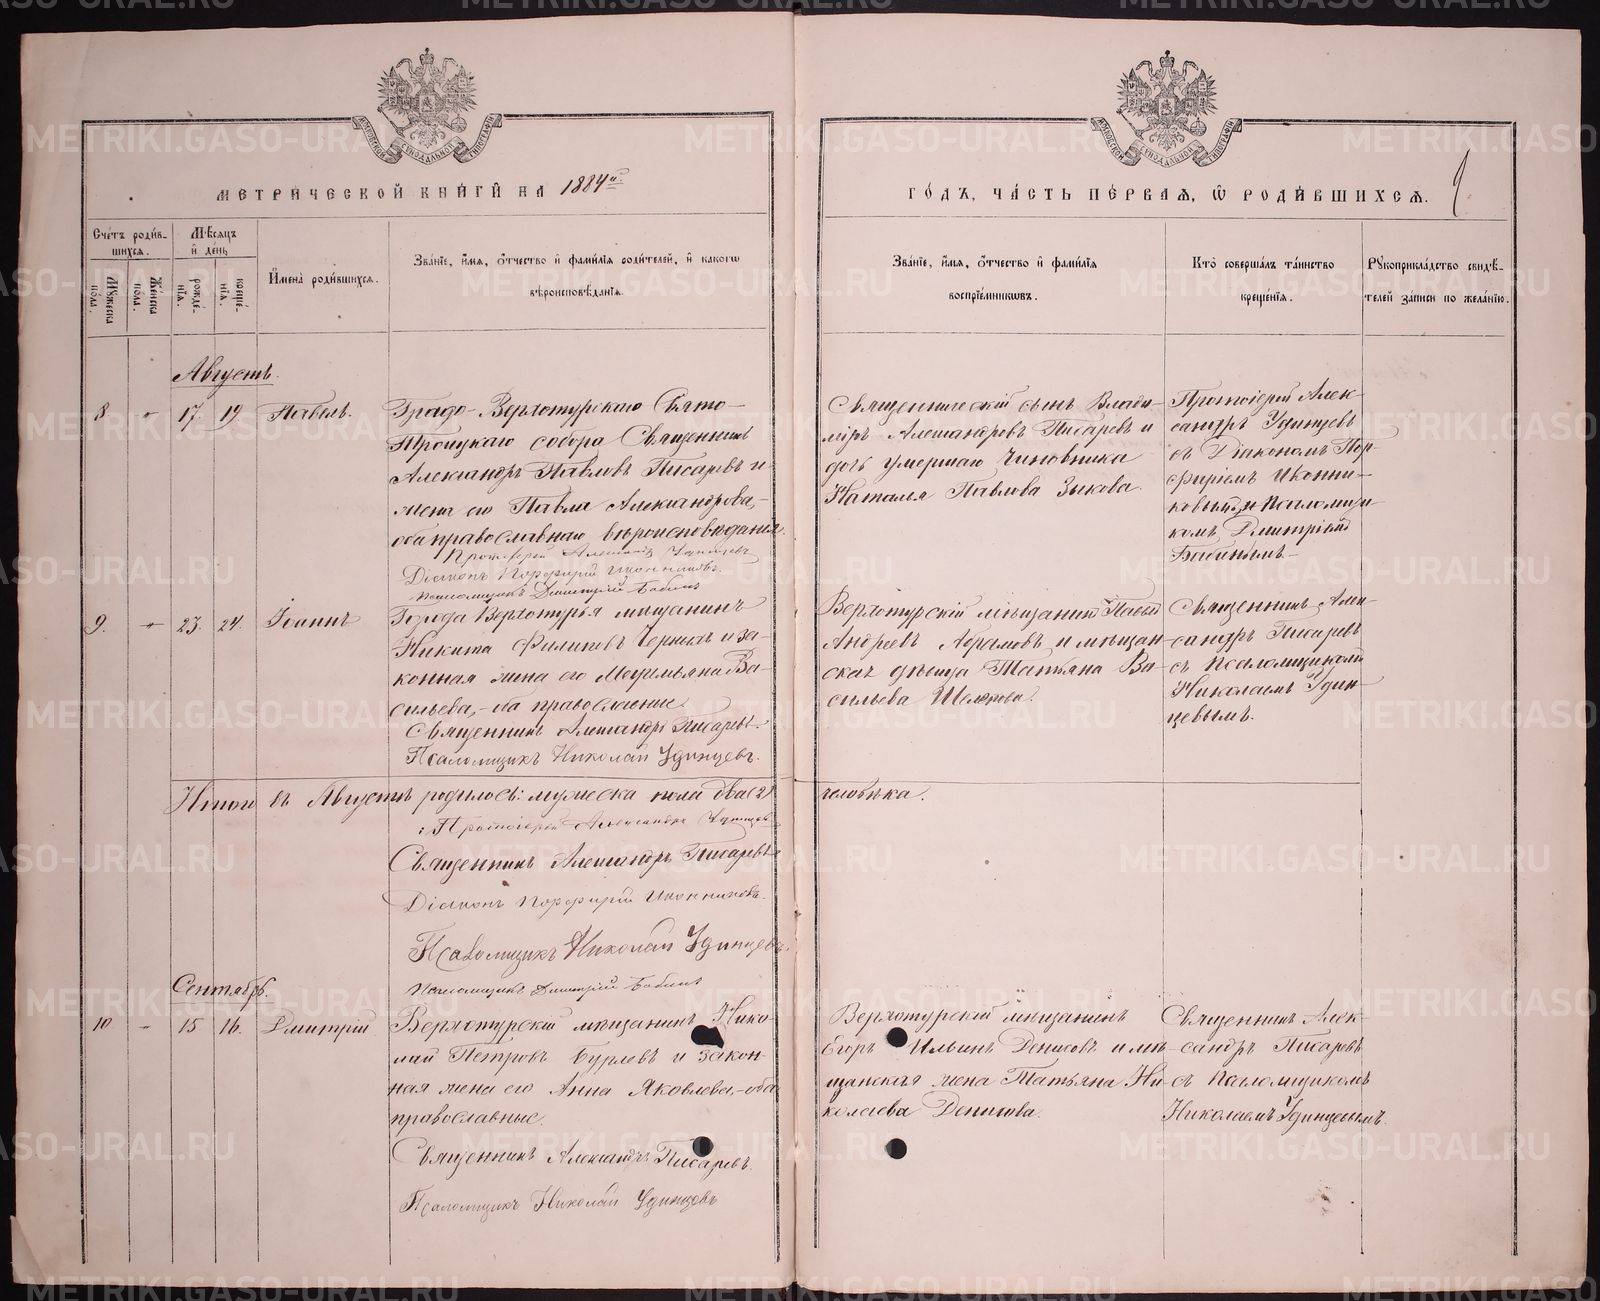 МЕТРИЧЕСКОЙ КНИГИ НА 1884й
ГОДЪ, ЧАСТЬ ПЕРВАЯ, Ѡ РОДИВШИХСЯ.
9
Счетъ родив-
шихся.
Мужеска пола.
Женска пола.
Мѣсяцъ и день
рожде-нія.
креще-нія.
Имена родившихся.
Званіе, имя, отчество и фамилія родителей, и какогѡ
вѣроисповѣданія.
Званіе, имя, отчество и фамилія
воспріемникѡвъ.
Кто совершалъ таинство
крещенія.
Рукоприкладство свидѣ-
телей записи по желанію.
Августъ.
8 - 17. 19 Павелъ.
Градо-Верхотурскаго Свято-
Троицкаго собора Священникъ
Александръ Павловъ Писаревъ и
жена его Павла Александрова,
оба православнаго вѣроисповѣданія.
Протоіерей Александръ Удинцевъ
Діаконъ Порфирій Иконниковъ.
Псаломщикъ Димитрій Бабинъ
Священническій сынъ Влади-
міръ Александровъ Писаревъ и
дочь умершаго чиновника
Наталя Павлова Зыкова.
Протоіерей Алек-
сандръ Удинцевъ
съ Діакономъ Пор-
фиріемъ Иконни-
ковымъ и Псаломщи-
комъ Дмитріемъ
Бабинымъ.-
9. - 23. 24. Іоаннъ
Города Верхотурья мѣщанинъ
Никита Филиповъ Черныхъ и за-
конная жена его Васильева,-оба православные
Священникъ Александръ Писаревъ.
Псаломщикъ Николай Удинцевъ.
Верхотурскій мѣщанинъ Павелъ
Андреевъ Абрамовъ, и мѣщан-
ская дѣвица Татьяна Ва-
сильева
Священникъ Алек-
сандръ Писаревъ
съ Псаломщикомъ
Николаемъ Удин-
цевымъ.
Итого въ Августѣ родилось: мужеска пола два (2) человѣка.
Протоіерей Александръ Удинцевъ
Священникъ Александръ Писаревъ
Діаконъ Порфирій Иконниковъ.
Псаломщикъ Николай Удинцевъ.
Псаломщикъ Димитрій Бабинъ
Сентябрь.
10 - 15 16. Дмитрій
Верхотурскій мѣщанинъ Нико-
лай Петровъ Бурлевъ и закон-
ная жена его Анна Яковлева,-оба
православные.
Священникъ Александръ Писаревъ.
Псаломщикъ Николай Удинцовъ
Верхотурскій мѣщанинъ
Егоръ Ильинъ Денисовъ и мѣ-
щанская жена Татьяна Ни-
колаева Денисова.
Священникъ Алек-
сандръ Писаревъ
съ Псаломщикомъ
Николаемъ Удинцевымъ.
METRIKI.GASO-URAL.RU